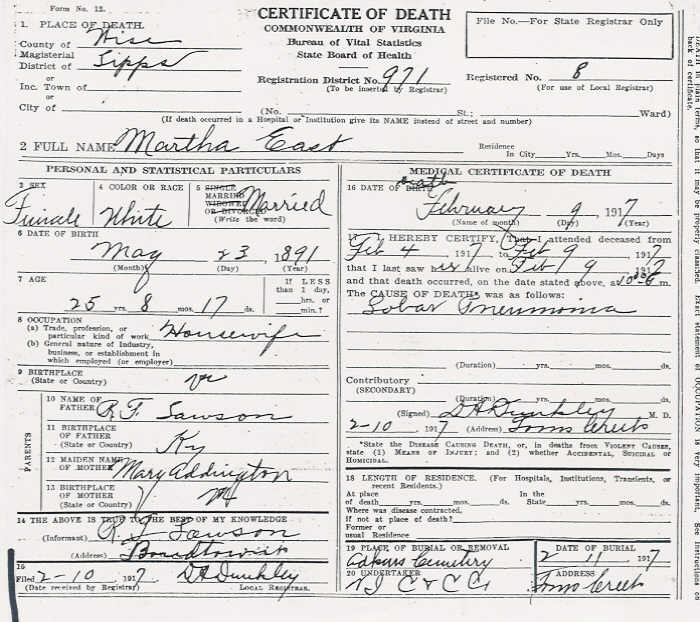 Form No. 12.
CERTIFICATE OF DEATH
COMMONWEALTH OF VIRGINIA
Bureau of Vital Statistics
State Board of Health
File No.—For State Registrar Only
1. PLACE OF DEATH.
County of Wise
Magisterial District of Lipps
or
Inc. Town of
or
City of
Registration District No. 971
(To be inserted by Registrar)
Registered No. 8
(For use of Local Registrar)
(No. St.; Ward)
(If death occurred in a Hospital or Institution give its NAME instead of street and number)
2 FULL NAME Martha East
Residence
In City Yrs. Mos. Days
PERSONAL AND STATISTICAL PARTICULARS
3 SEX
Female
4 COLOR OR RACE
White
5 SINGLE
MARRIED
WIDOWED
OR DIVORCED
(Write the word)
Married
6 DATE OF BIRTH
May 23, 1891
(Month) (Day) (Year)
7 AGE
25 yrs. 8 mos. 17 ds.
If LESS than 1 day, hrs. or min.?
8 OCCUPATION
(a) Trade, profession, or particular kind of work Housewife
(b) General nature of Industry, business, or establishment in which employed (or employer)
9 BIRTHPLACE
(State or Country) Va
PARENTS
10 NAME OF FATHER R. F. Lawson
11 BIRTHPLACE OF FATHER
(State or Country) Ky
12 MAIDEN NAME OF MOTHER Mary Addington
13 BIRTHPLACE OF MOTHER
(State or Country)
14 THE ABOVE IS TRUE TO THE BEST OF MY KNOWLEDGE
(Informant) R. F. Lawson
(Address)
15
Filed 2-10, 1917 D A Dunkley
(Date received by Registrar) Local Registrar.
MEDICAL CERTIFICATE OF DEATH
16 DATE OF BIRTH death
February 9, 1917
(Name of month) (Day) (Year)
17 I HEREBY CERTIFY, That I attended deceased from
Feb 4, 1917, to Feb 9, 1917
that I last saw her alive on Feb 9, 1917
and that death occurred, on the date stated above, at m.
The CAUSE OF DEATH* was as follows:
Lobar Pneumonia
(Duration) yrs. mos. ds.
Contributory
(SECONDARY)
(Duration) yrs. mos. ds.
(Signed) D A Dunkley M. D.
2-10, 1917 (Address) Toms Creek
*State the DISEASE CAUSING DEATH, or, in deaths from VIOLENT CAUSES, state (1) MEANS OF INJURY; and (2) whether ACCIDENTAL, SUICIDAL or HOMICIDAL.
18 LENGTH OF RESIDENCE. (For Hospitals, Institutions, Transients, or recent Residents.)
At place of death yrs. mos. ds. In the State yrs. mos. ds.
Where was disease contracted, if not at place of death?
Former or usual Residence
19 PLACE OF BURIAL OR REMOVAL
Cemetery
DATE OF BURIAL
2 11, 1917
20 UNDERTAKER
ADDRESS
Toms Creek
DEATH in plain terms, so that it may be properly classified. Exact statement of OCCUPATION is very important. See instructions on back of certificate.